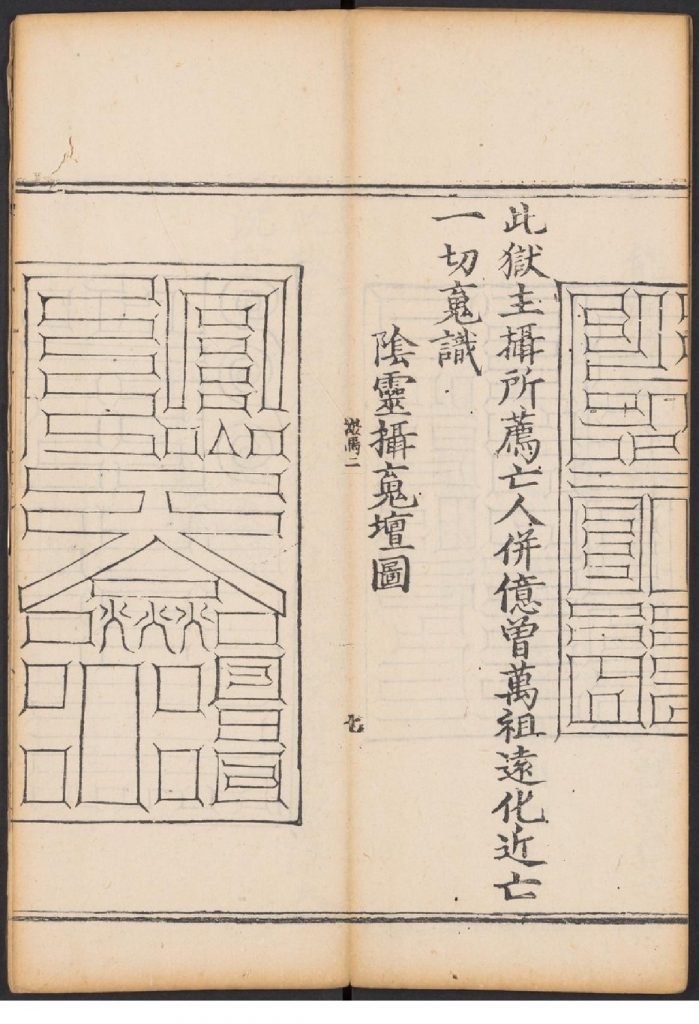 此獄主攝所薦亡人併億曽萬祖遠化近亡
一切䰟識
陰靈攝䰟壇圖
二
七